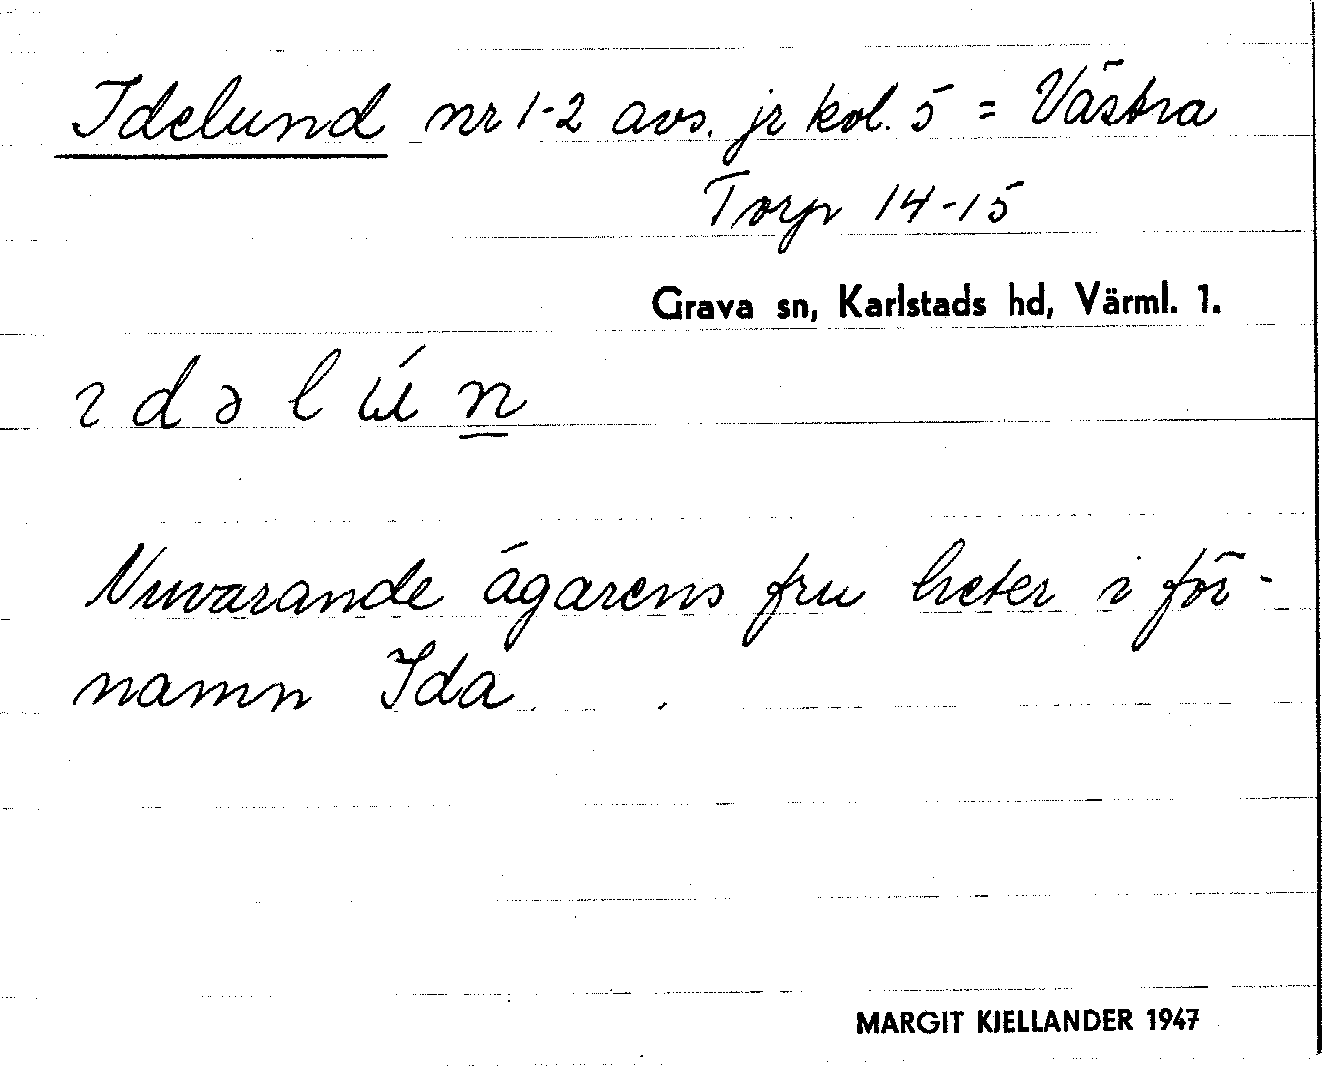 Idelund nr 1-2 avs. jr kol. 5 = Västra
Torp 14-15
Grava sn, Karlstads hd, Värml. 1.
ɩ d ə l ú n
Nuvarande ägarens fru heter i för-
namn Ida.
MARGIT KJELLANDER 1947